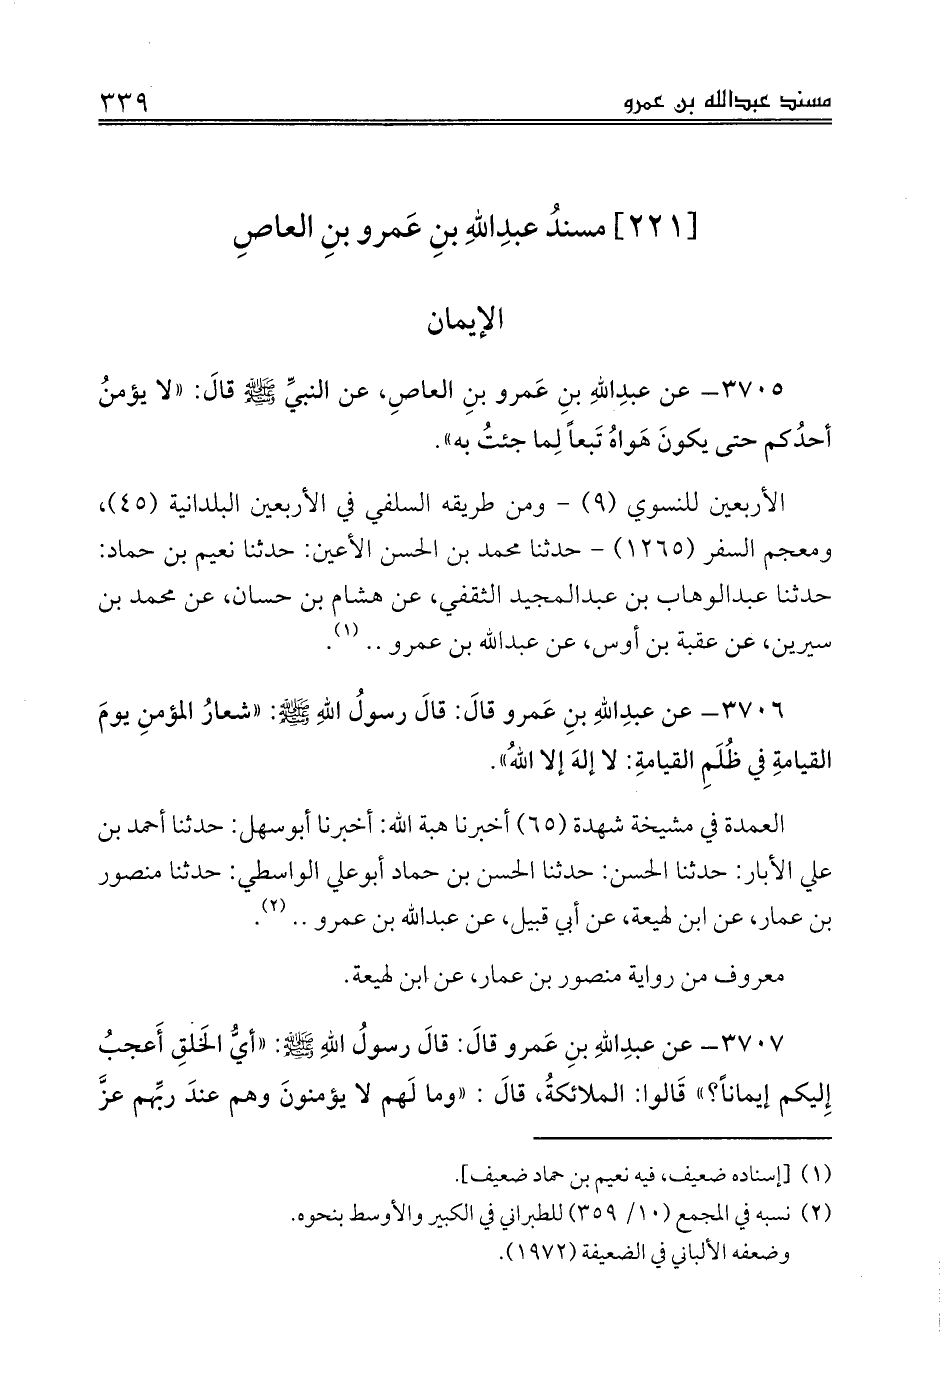 مسند عبدالله بن عمرو ٣٣٩
[٢٢١] مسندُ عبدِاللهِ بنِ عَمرو بنِ العاصِ
الإيمان
٣٧٠٥ـ عن عبدِاللهِ بنِ عَمرو بنِ العاصِ، عن النبيِّ ﷺ قالَ: «لا يؤمنُ
أحدُكم حتى يكونَ هَواهُ تَبعاً لِما جئتُ به».
الأربعين للنسوي (٩) - ومن طريقه السلفي في الأربعين البلدانية (٤٥)،
ومعجم السفر (١٢٦٥) - حدثنا محمد بن الحسن الأعين: حدثنا نعيم بن حماد:
حدثنا عبدالوهاب بن عبدالمجيد الثقفي، عن هشام بن حسان، عن محمد بن
سيرين، عن عقبة بن أوس، عن عبدالله بن عمرو .. (١).
٣٧٠٦ـ عن عبدِاللهِ بنِ عَمرو قالَ: قالَ رسولُ اللهِ ﷺ: «شعارُ المؤمنِ يومَ
القيامةِ في ظُلَمِ القيامةِ: لا إلهَ إلا اللهُ».
العمدة في مشيخة شهدة (٦٥) أخبرنا هبة الله: أخبرنا أبوسهل: حدثنا أحمد بن
علي الأبار: حدثنا الحسن: حدثنا الحسن بن حماد أبوعلي الواسطي: حدثنا منصور
بن عمار، عن ابن لهيعة، عن أبي قبيل، عن عبدالله بن عمرو .. (٢).
معروف من رواية منصور بن عمار، عن ابن لهيعة.
٣٧٠٧ـ عن عبدِاللهِ بنِ عَمرو قالَ: قالَ رسولُ اللهِ ﷺ: «أيُّ الخَلقِ أَعجبُ
إليكم إيماناً؟» قَالوا: الملائكةُ، قالَ : «وما لَهم لا يؤمنونَ وهم عندَ ربِّهم عزَّ
(١) [إسناده ضعيف، فيه نعيم بن حماد ضعيف].
(٢) نسبه في المجمع (١٠/ ٣٥٩) للطبراني في الكبير والأوسط بنحوه.
وضعفه الألباني في الضعيفة (١٩٧٢).